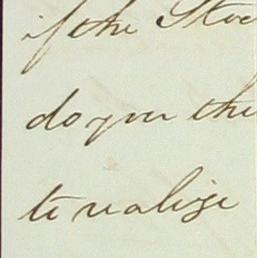 if the Stoc
do you the
to realize